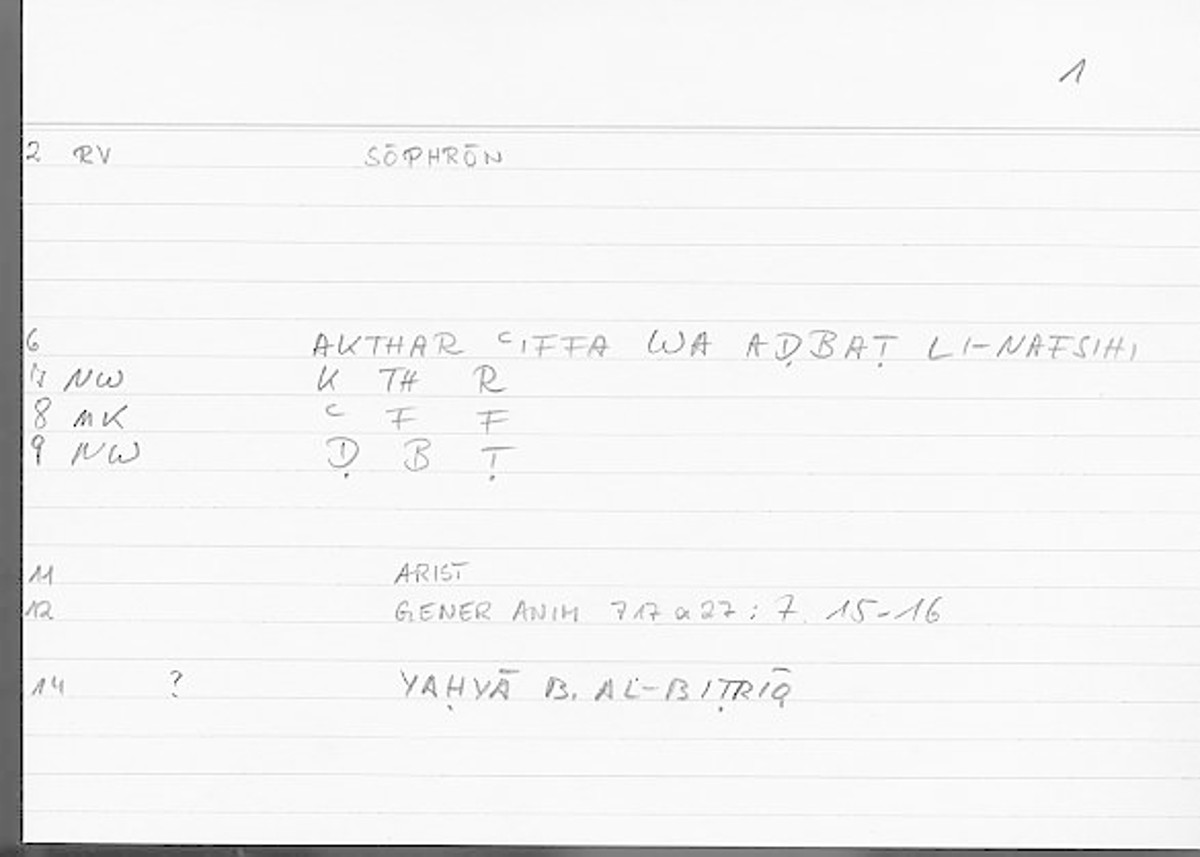 1
2 RV SŌPHRŌN
6 AKTHAR ʿIFFA WA AḌBAṬ LI-NAFSIHI
7 NW K TH R
8 MK ʿ F F
9 NW Ḍ B Ṭ
11 ARIST
12 GENER ANIM 717 a 27 : 7. 15-16
14 ? YAḤYĀ B. AL-BIṬRĪQ